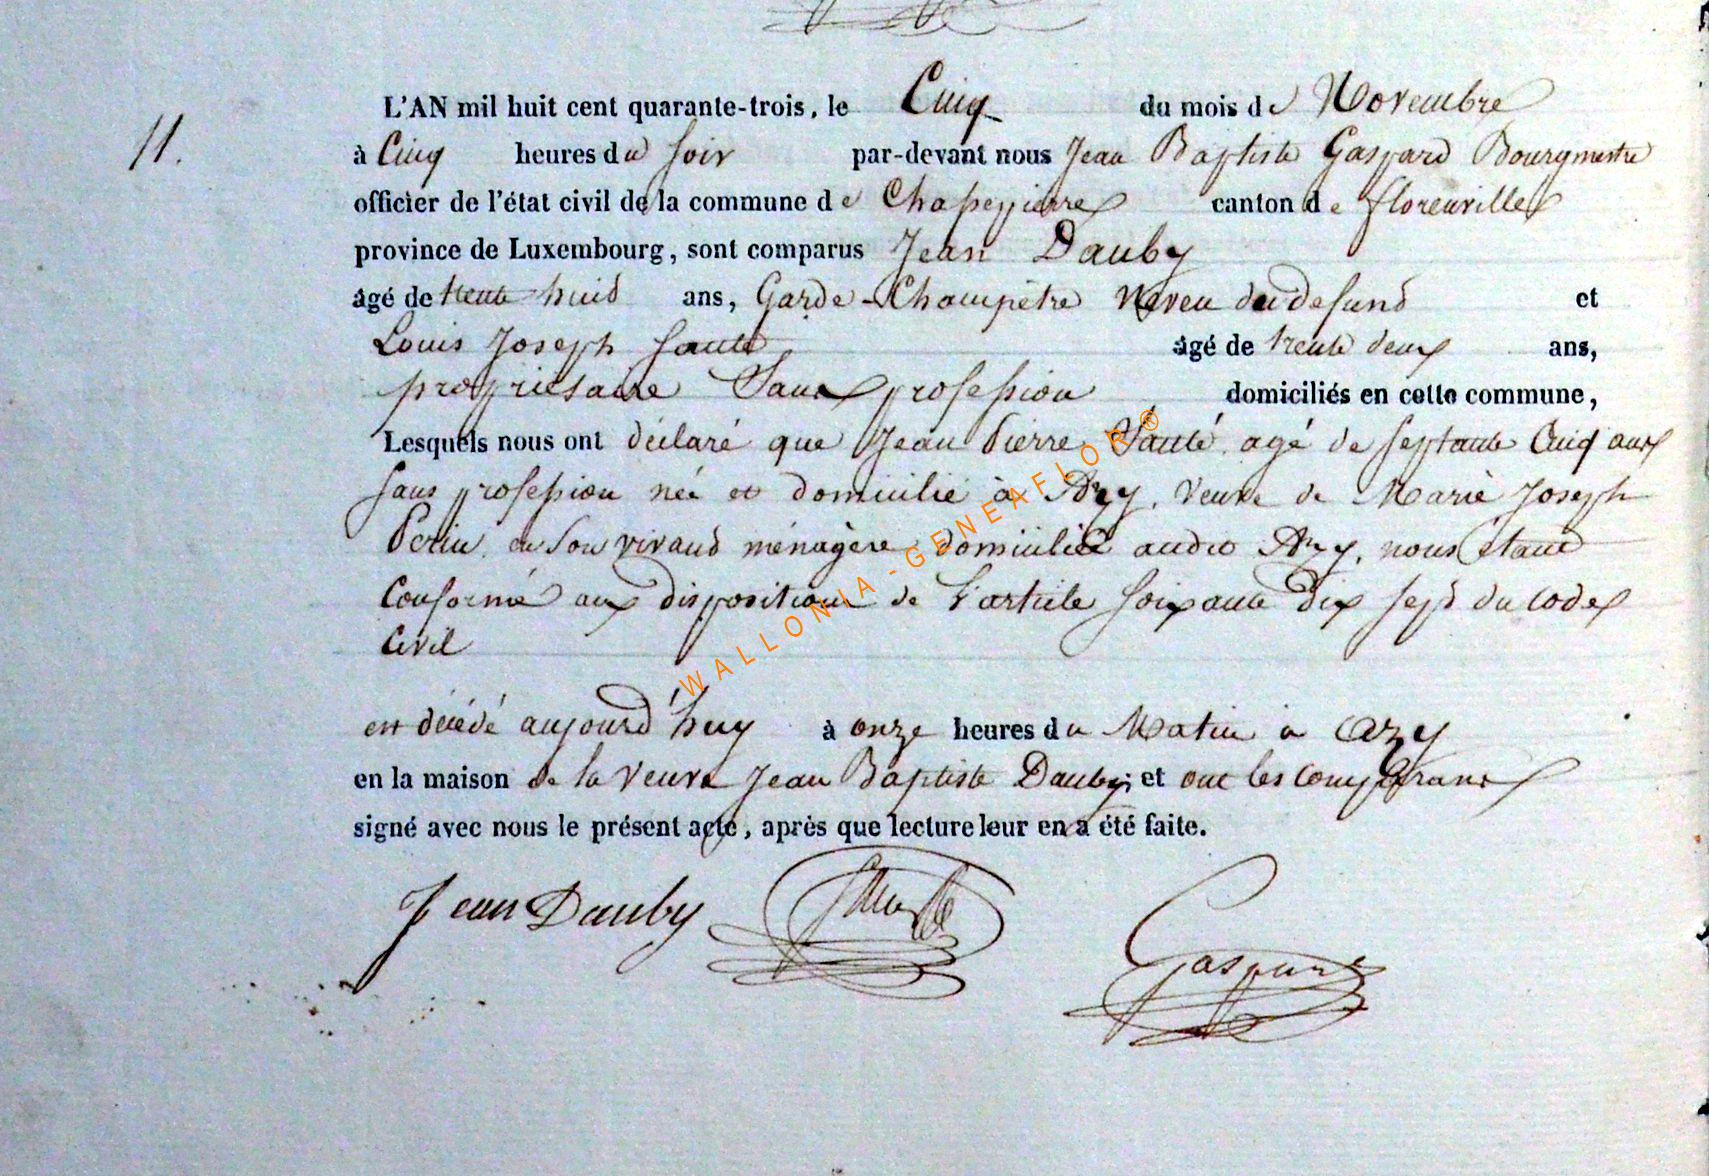 L'AN mil huit cent quarante-trois, le Cinq du mois de Novembre
11.
à Cinq heures du soir par-devant nous Jean Baptiste Gaspard Bourgmestre
officier de l'état civil de la commune de Chassepierre canton de florenville
province de Luxembourg, sont comparus Jean Dauby
âgé de trente huid ans, Garde-Champêtre Neveu du defund et
Louis Joseph Sauté âgé de trente deux ans,
propriétaire Sans profession domiciliés en cette commune,
Lesquels nous ont déclaré que Jean Pierre Sauté agé de septante Cinq ans
sans profession née et domicilié à Azy, veuve de Marie Joseph
Perin en son vivand ménagère domiciliée audit Azy, nous étant
Conformé aux dispositions de l'article soixante dix sept du code
Civil
est décédé aujourd'huy à onze heures du Matin à Azy
en la maison de la veuve Jean Baptiste Dauby; et ont les comparans
signé avec nous le présent acte, après que lecture leur en a été faite.
Jean Dauby Sauté
Gaspard
WALLONIA-GENEAFLOR®